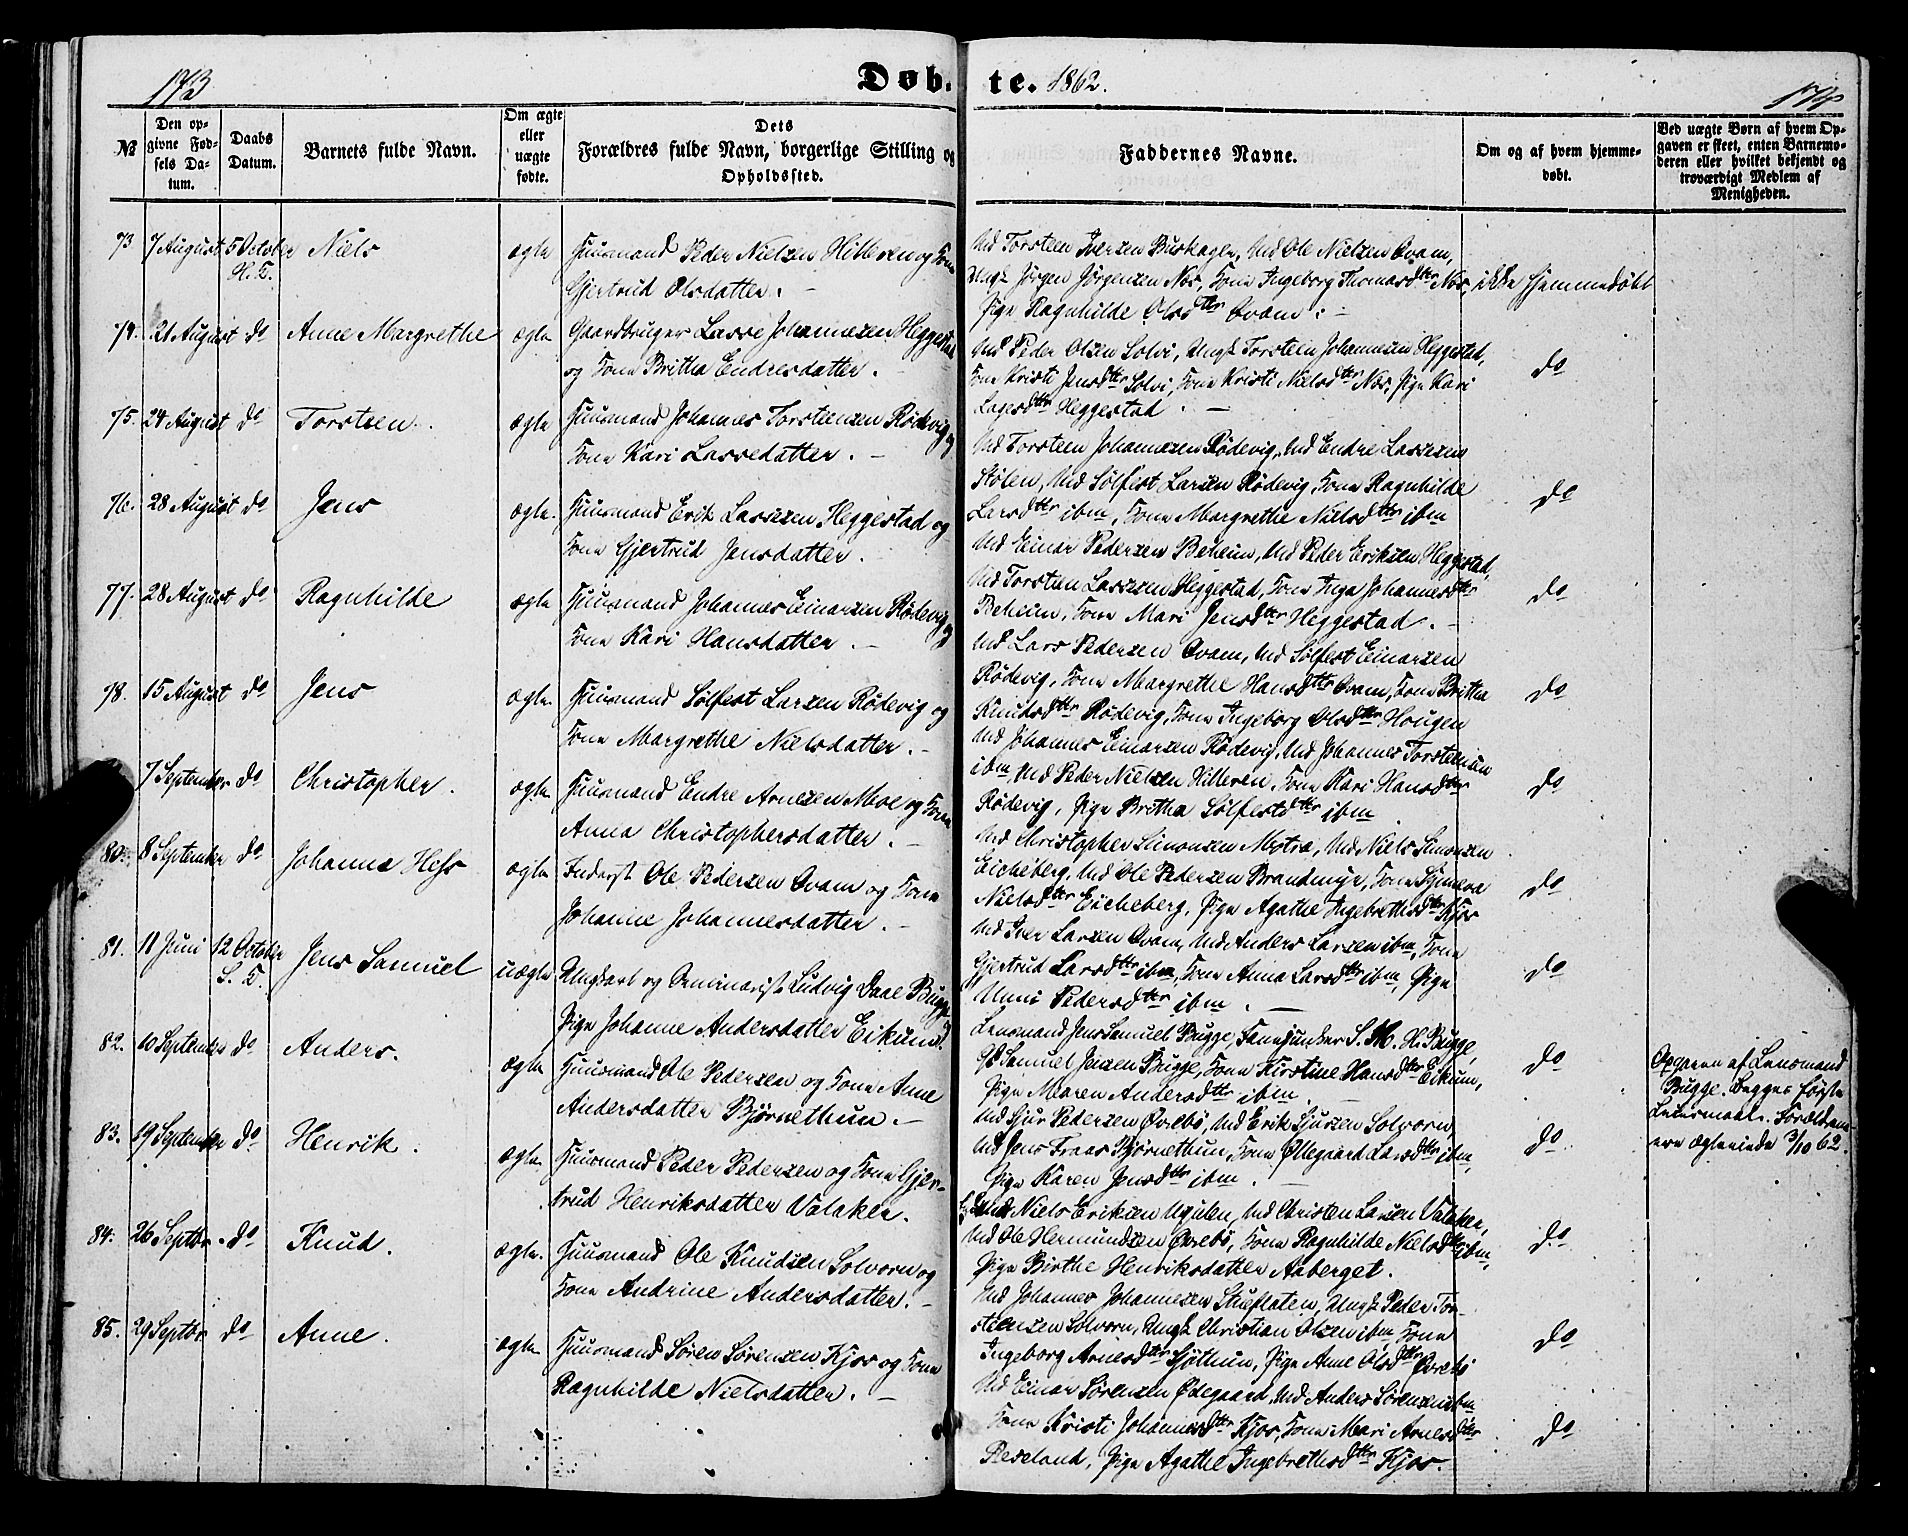 173
Døb-
te. 1862.
174
№
Den op-
givne Fød-
sels Da-
tum.
Daabs
Datum.
Barnets fulde Navn.
Om ægte
eller
uægte
fødte.
Dets
Forældres fulde Navn, borgerlige Stilling og
Opholdssted.
Faddernes Navne.
Om og af hvem hjemme-
døbt.
Ved uægte Børn af hvem Op-
gaven er skeet, enten Barnemo-
deren eller hvilket bekjendt og
troværdigt Medlem af
Menigheden.
73 7 August 5 October Niels ægte Huusmand Peder Nielsen Hilleren og Kone
H. K.
Gjertrud Olsdatter.
Md Torsteen Iversen Buskagen, Md Ole Nielsen Qvam,
Ungk Jørgen Jørgensen Næs, Kone Ingeborg Thomasdtter Næs, ikke hjemmedøbt
Pige Ragnhilde Olsdtter Qvam.
74. 21 August do Anne Margrethe ægte Gaardbruger Lasse Johannesen Heggestad
og Kone Britha Endresdatter.
Md Peder Olsen Solvi, Ungk Torsteen Johannesen Heggestad,
Kone Kristi Jensdtter Solvi, Kone Kristi Nielsdtter Næs, Pige Kari do
Lassesdtter Heggestad.
75. 24 August do Torsteen. ægte Huusmand Johannes Torsteensen Rødevig og
Kone Kari Lassedatter.
Md Torsteen Johannesen Rødevig, Md Endre Lassesen
Stølen, Md Sølfest Larsen Rødevig, Kone Ragnhilde do
Larsdtter ibm, Kone Margrethe Nielsdtter ibm
76. 28 August do Jens ægte. Huusmand Erik Lassesen Heggestad og
Kone Gjertrud Jensdatter.
Md Einar Pedersen Beheim, Md Peder Eriksen Heggestad,
Md Torsteen Lassesen Heggestad, Kone Inga Johannesdtter do
Beheim, Kone Mari Jensdtter Heggestad.
77. 28 August do Ragnhilde ægte Huusmand Johannes Einarsen Rødevig og
Kone Kari Hansdatter
Md Lars Pedersen Qvam, Md Sølfest Einarsen
Rødevig, Kone Margrethe Hansdtter Qvam, Kone Britha do
Knutsdtter Rødevig, Kone Ingeborg Olsdtter Hougen
78. 15 August do Jens ægte. Huusmand Sølfest Larsen Rødevig og
Kone Margrethe Nielsdatter.
Md Johannes Einarsen Rødevig, Md Johannes Torsteensen
ibm, Md Peder Nielsen Hilleren, Kone Kari Hansdtter do
Rødevig, Pige Britha Sølfestdtter ibm
7 September do Christopher. ægte Huusmand Endre Arnesen Moe og Kone
Anna Christophersdatter.
Md Christopher Simonsen Mytra, Md Niels Simonsen
Eicheberg, Md Ole Pedersen Brandmyr, Kone Synneva do
Nielsdtter Eicheberg, Pige Agathe Ingebrethsdtter Kjos
80. 8 September do Johanne Hess ægte Inderst Ole Pedersen Qvam og Kone
Johanne Johannesdatter.
Md Iver Larsen Qvam, Md Anders Larsen ibm, Kone
Gjertrud Larsdtter ibm, Kone Anna Larsdtter ibm, Pige do
Unni Pedersdtter ibm.
81. 11 Juni 12 October Jens Samuel uægte Ungkarl og Seminarist Ludvig Daae Bugge
S. K.
Pige Johanne Andersdatter Eikum.
Lensmand Jens Samuel Bugge, Fanejunker S. M. H. Bugge,
Samuel Jensen Bugge, Kone Kirstine Hansdtter Eikum, do
Pige Maren Andersdtter ibm.
Opgaven af Lensmand
Bugge. Begges første
Leiermaal. Forældrene
ere ægteviede 3/10 62.
82. 10 September do Anders. ægte Huusmand Ole Pedersen og Kone Anne
Andersdatter Bjørnethun.
Md Sjur Pedersen Øvrebø, Md Erik Sjursen Solvorn,
Md Jens Fraas Bjørnethun, Kone Ødegaard Larsdtter ibm, do
Pige Karen Jensdtter ibm.
83. 19 September do Henrik. ægte. Huusmand Peder Pedersen og Kone Gjer-
trud Henriksdatter Valaker.
Md Niels Eriksen Ugulen, Md Christen Larsen Valaker,
Md Ole Hermundsen Øvrebø, Kone Ragnhilde Nielsdtter ibm, do
Pige Birthe Henriksdatter Aaberget.
84. 26 Septbr. do Knud. ægte. Huusmand Ole Knudsen Solvorn og
Kone Andrine Andersdatter.
Md Johannes Johannesen Stuefloten, Ungk Peder Tor-
steensen Solvorn, Ungk Christian Olsen ibm, Kone
Ingeborg Arnesdtter Sjøthun, Pige Anne Olsdtter Øvrebø do
85. 29 Septbr do Anne. ægte. Huusmand Søren Sørensen Kjos og Kone
Ragnhilde Nielsdatter.
Md Einar Sørensen Ødegaard, Md Anders Sørensen ibm
Kone Kristi Johannesdtter Kjos, Kone Mari Arnesdtter do
Reseland, Pige Agathe Ingebrethsdtter Kjos.